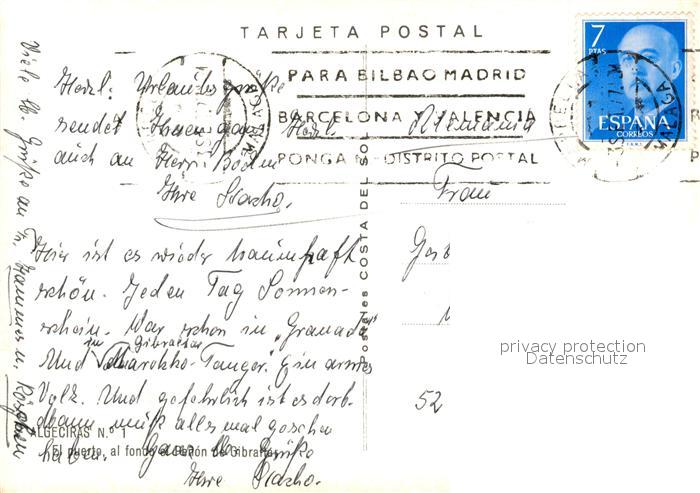 TARJETA POSTAL
7
PTAS
ESPAÑA
CORREOS
PARA BILBAO MADRID
BARCELONA Y VALENCIA
PONGA Nº DISTRITO POSTAL
MALAGA
MALAGA
Herzl. Urlaubsgrüße
sendet Ihnen ganz Herzl.
auch an Herrn
Ihre
Hier ist es wieder traumhaft
schön. Jeden Tag Sonnen-
schein. War schon in "Granada
Und in Gibraltar
Marokko-Tanger. Ein armes
Volk. Und gefährlich ist es dort.
dann muß alles mal gesehn
haben. Ganz lb. Grüße
Ihre
Viele lb. Grüße an Fr.
Alemania
Frau
52
Postales COSTA DEL SOL
ALGECIRAS N.º 1
El puerto, al fondo el Peñón de Gibraltar
privacy protection
Datenschutz